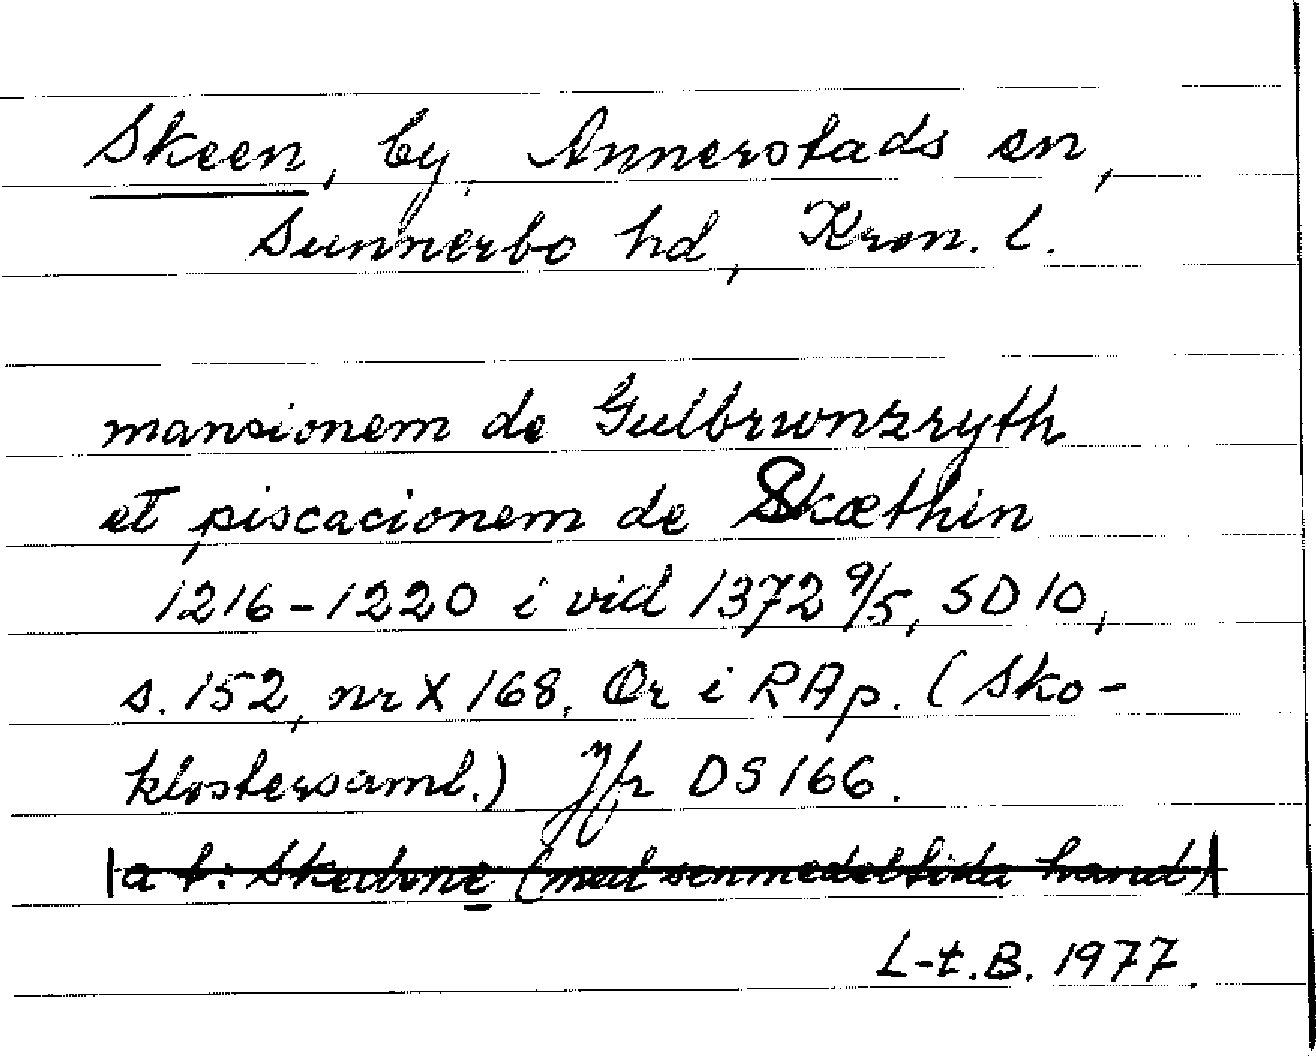 Skeen, by, Annerstads sn,
Sunnerbo hd, Kron. l.
mansionem de Gulbrwnzryth
et piscacionem de Skæthin
1216-1220 i vid 1372 9/5, SD 10,
s. 152, nr X 168. Or i RAp. (Sko-
klostersaml.) Jfr DS 166.
a t: (med senmedeltida hand)
L-t.B. 1977.